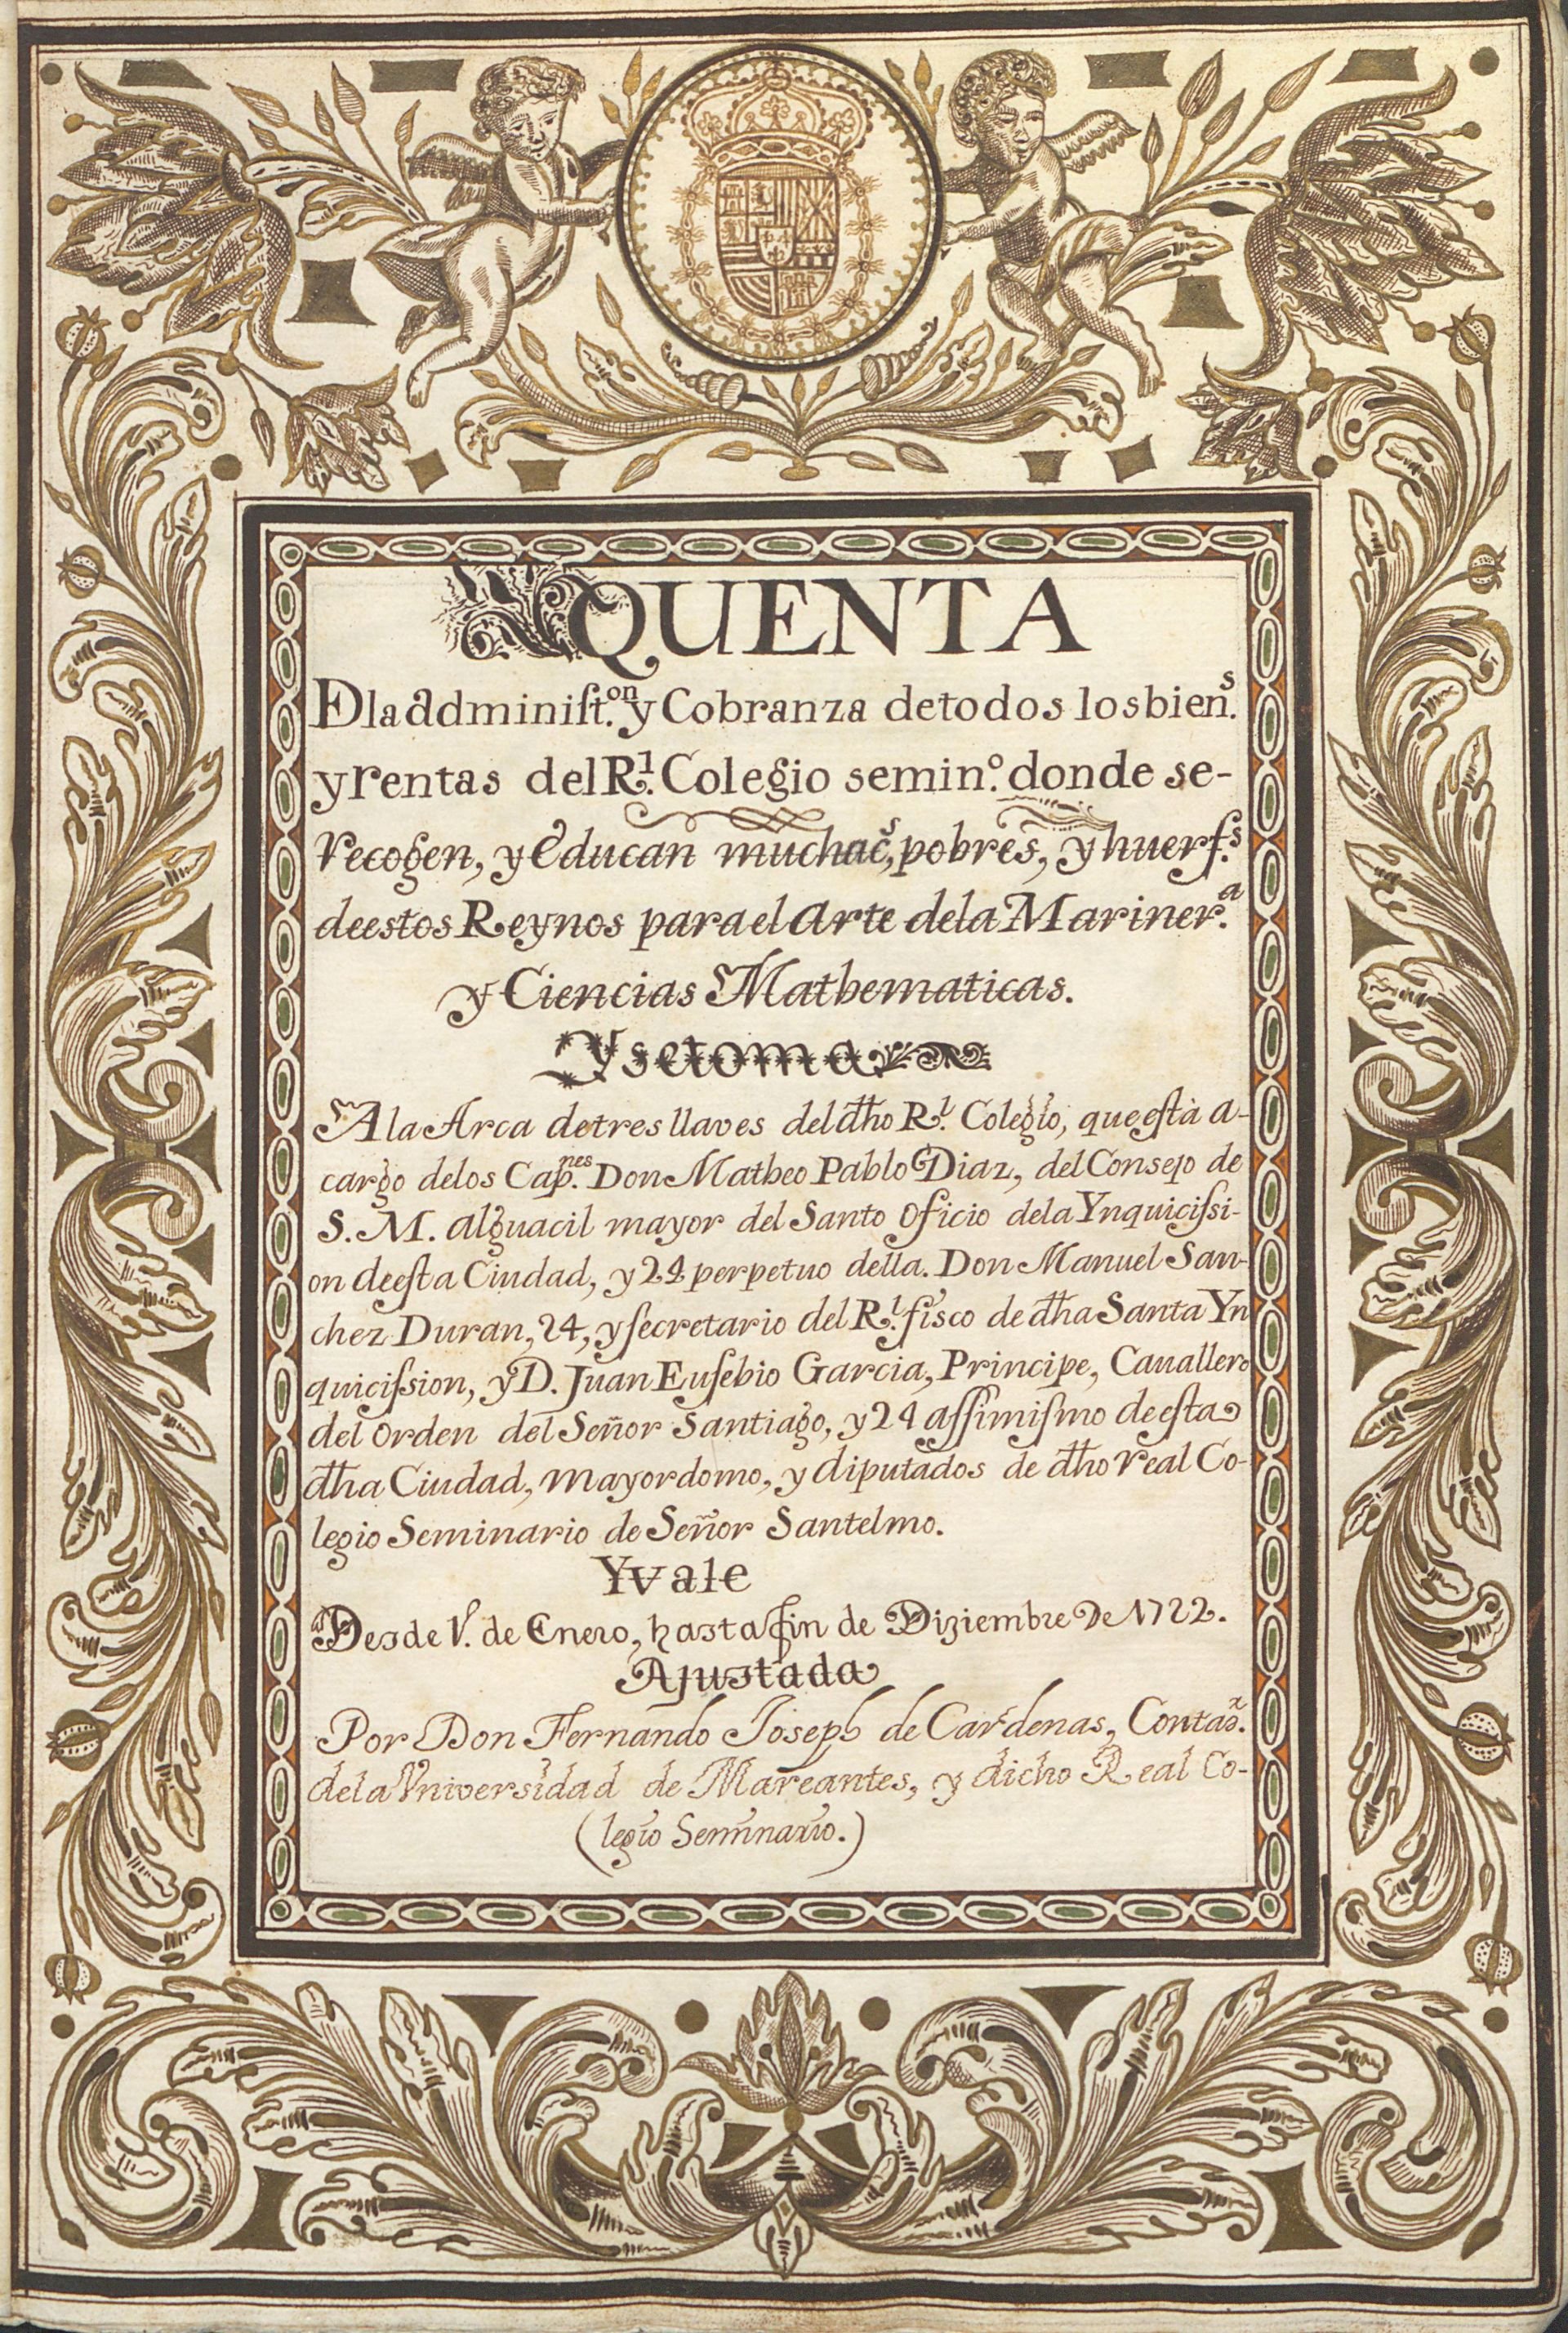 QUENTA
De la administ.on y Cobranza de todos los bien.s
y rentas del R.l Colegio semin.o donde se-
recogen, y Educan muchac.s, pobres, y huerf.s
de estos Reynos para el Arte de la Mariner.a
y Ciencias Mathematicas.
Y se toma
A la Arca de tres llaves del dho R.l Colegio, que está a-
cargo de los Cap.nes Don Matheo Pablo Diaz, del Consejo de
S. M. Alguacil mayor del Santo Oficio de la Ynquicissi-
on de esta Ciudad, y 24 perpetuo della. Don Manuel San-
chez Duran, 24, y secretario del R.l fisco de dha Santa Yn
quicission, y D. Juan Eusebio Garcia, Principe, Cauallero
del Orden del Señor Santiago, y 24 assimismo de esta
dha Ciudad, Mayordomo, y diputados de dho Real Co-
legio Seminario de Señor Santelmo.
Y vale
Desde 1.º de Enero, hasta fin de Diziembre De 1722.
Ajustada
Por Don Fernando Joseph de Cardenas, Contad.r
de la Vniversidad de Mareantes, y dicho Real Co-
(legio Seminario.)